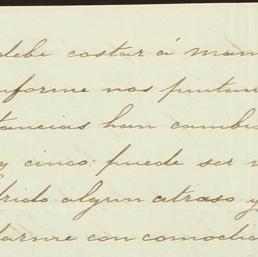 debe costar á mam
nforme nos pintan
tancias han cambi
y cinco: puede ser
rido algun atraso y
darme con comodi